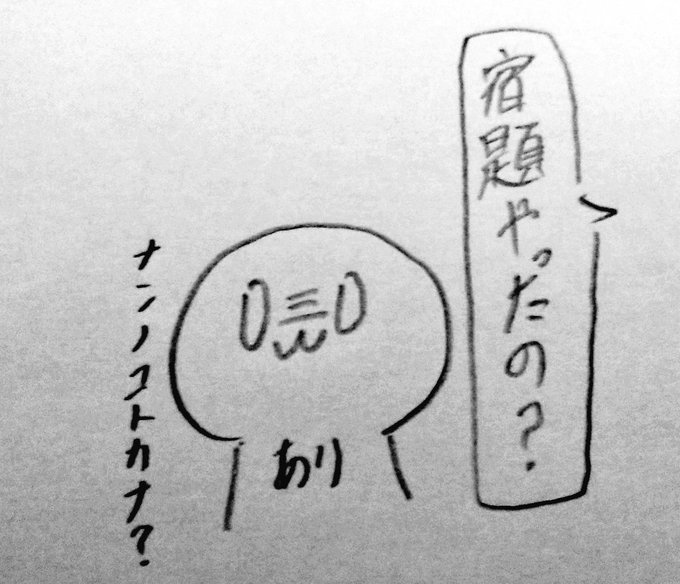 宿題やったの?
ナンノコトカナ?
あり